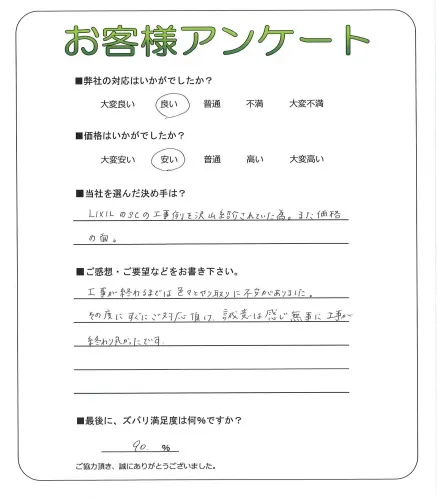 お客様アンケート
■弊社の対応はいかがでしたか？
大変良い 良い 普通 不満 大変不満
■価格はいかがでしたか？
大変安い 安い 普通 高い 大変高い
■当社を選んだ決め手は？
LIXILのSCの工事例を沢山紹介されていた為。また価格
の面。
■ご感想・ご要望などをお書き下さい。
工事が終わるまでは色々とやり取りに不安がありました。
その度にすぐにご対応頂け、誠意は感じ無事に工事が
終わり良かったです。
■最後に、ズバリ満足度は何%ですか？
90 %
ご協力頂き、誠にありがとうございました。